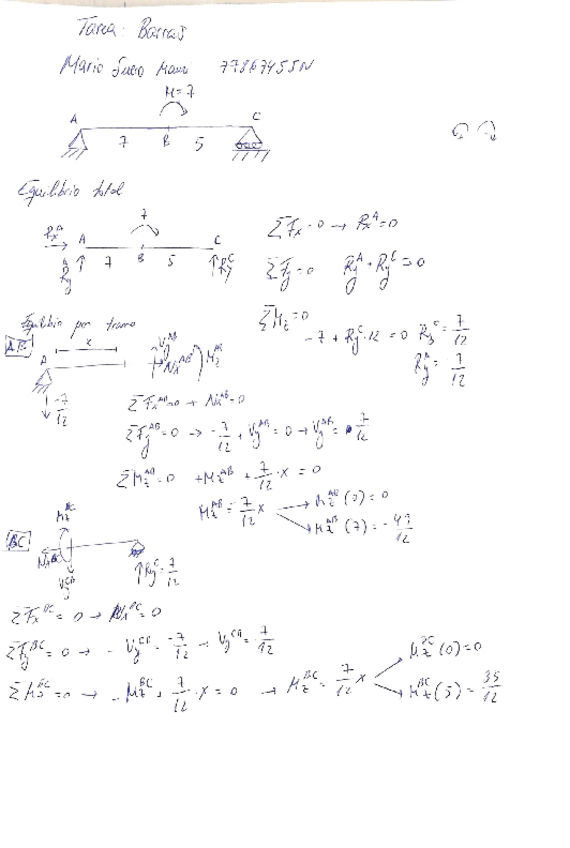 Tarea: Barras
Mario 77867455N
M=7
A C
7 B 5
Equilibrio total
7
RxA A C
RyA 7 B 5 RyC
ΣFx=0 → RxA=0
ΣFy=0 RyA+RyC=0
ΣMz=0
-7+RyC·12=0 RyC=7/12
RyA=7/12
Equilibrio por tramo
AB
x
A VyAB NxAB MzAB
-7/12
ΣFxAB=0 → NxAB=0
ΣFyAB=0 → -7/12+VyAB=0 → VyAB=7/12
ΣMzAB=0 +MzAB+7/12·x=0
MzAB=7/12x → MzAB(0)=0
→ MzAB(7)=-49/12
BC
MzBC
NxBC
VyCB RyC=7/12
ΣFxBC=0 → NxBC=0
ΣFyBC=0 → -VyCB=-7/12 → VyCB=7/12
ΣMzBC=0 → -MzBC+7/12·x=0 → MzBC=7/12x → MzBC(0)=0
→ MzBC(5)=35/12